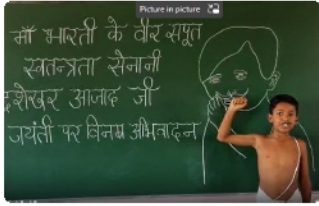 Picture in picture
माँ भारती के वीर सपूत
स्वतन्त्रता सेनानी
द्रशेखर आजाद जी
जयंती पर विनम्र अभिवादन